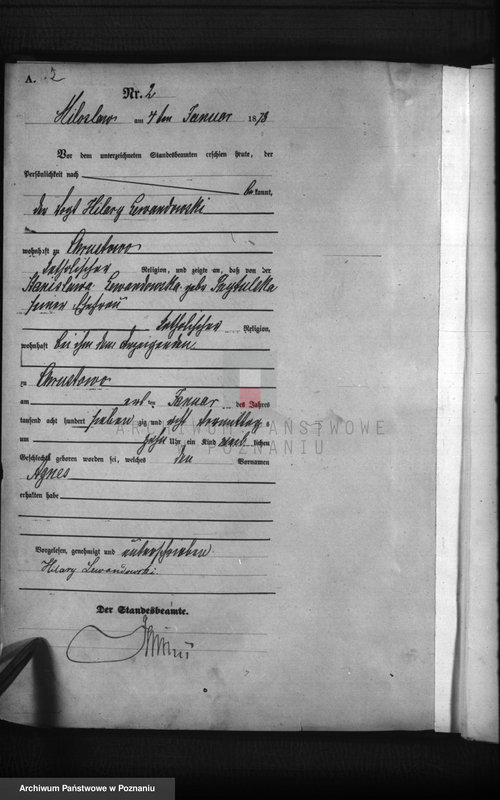 A. 2
Nr. 2
Miloslaw am 4ten Januar 1878
Vor dem unterzeichneten Standesbeamten erschien heute, der
Persönlichkeit nach
bekannt,
der Vogt Hilary Lewandowski
wohnhaft zu Chrustowo
katholischer Religion, und zeigte an, daß von der
Stanislawa Lewandowska geb.
seiner Ehefrau
katholischer Religion,
wohnhaft bei ihm dem Anzeigenden
zu Chrustowo
am ersten Januar des Jahres
tausend acht hundert siebenzig und acht Vormittags
um zehn Uhr ein Kind weiblichen
Geschlechts geboren worden sei, welches den Vornamen
Agnes
erhalten habe
Vorgelesen, genehmigt und unterschrieben
Hilary Lewandowski.
Der Standesbeamte.
ARCHIWUM PAŃSTWOWE
W POZNANIU
Archiwum Państwowe w Poznaniu